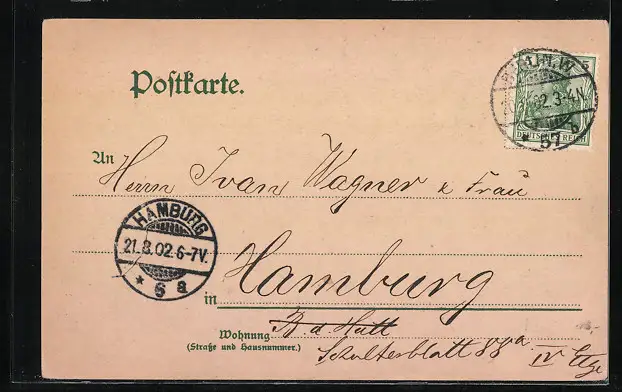 Postkarte.
BERLIN. W
02. 3-4N.
DEUTSCHES REICH
* 57 b
An Herrn Ivan Wagner & Frau
HAMBURG
21.8.02.6-7V.
* 6 a
in Hamburg
Wohnung B. d. Hütt
(Straße und Hausnummer.)
Schulterblatt 88a
IV Etge